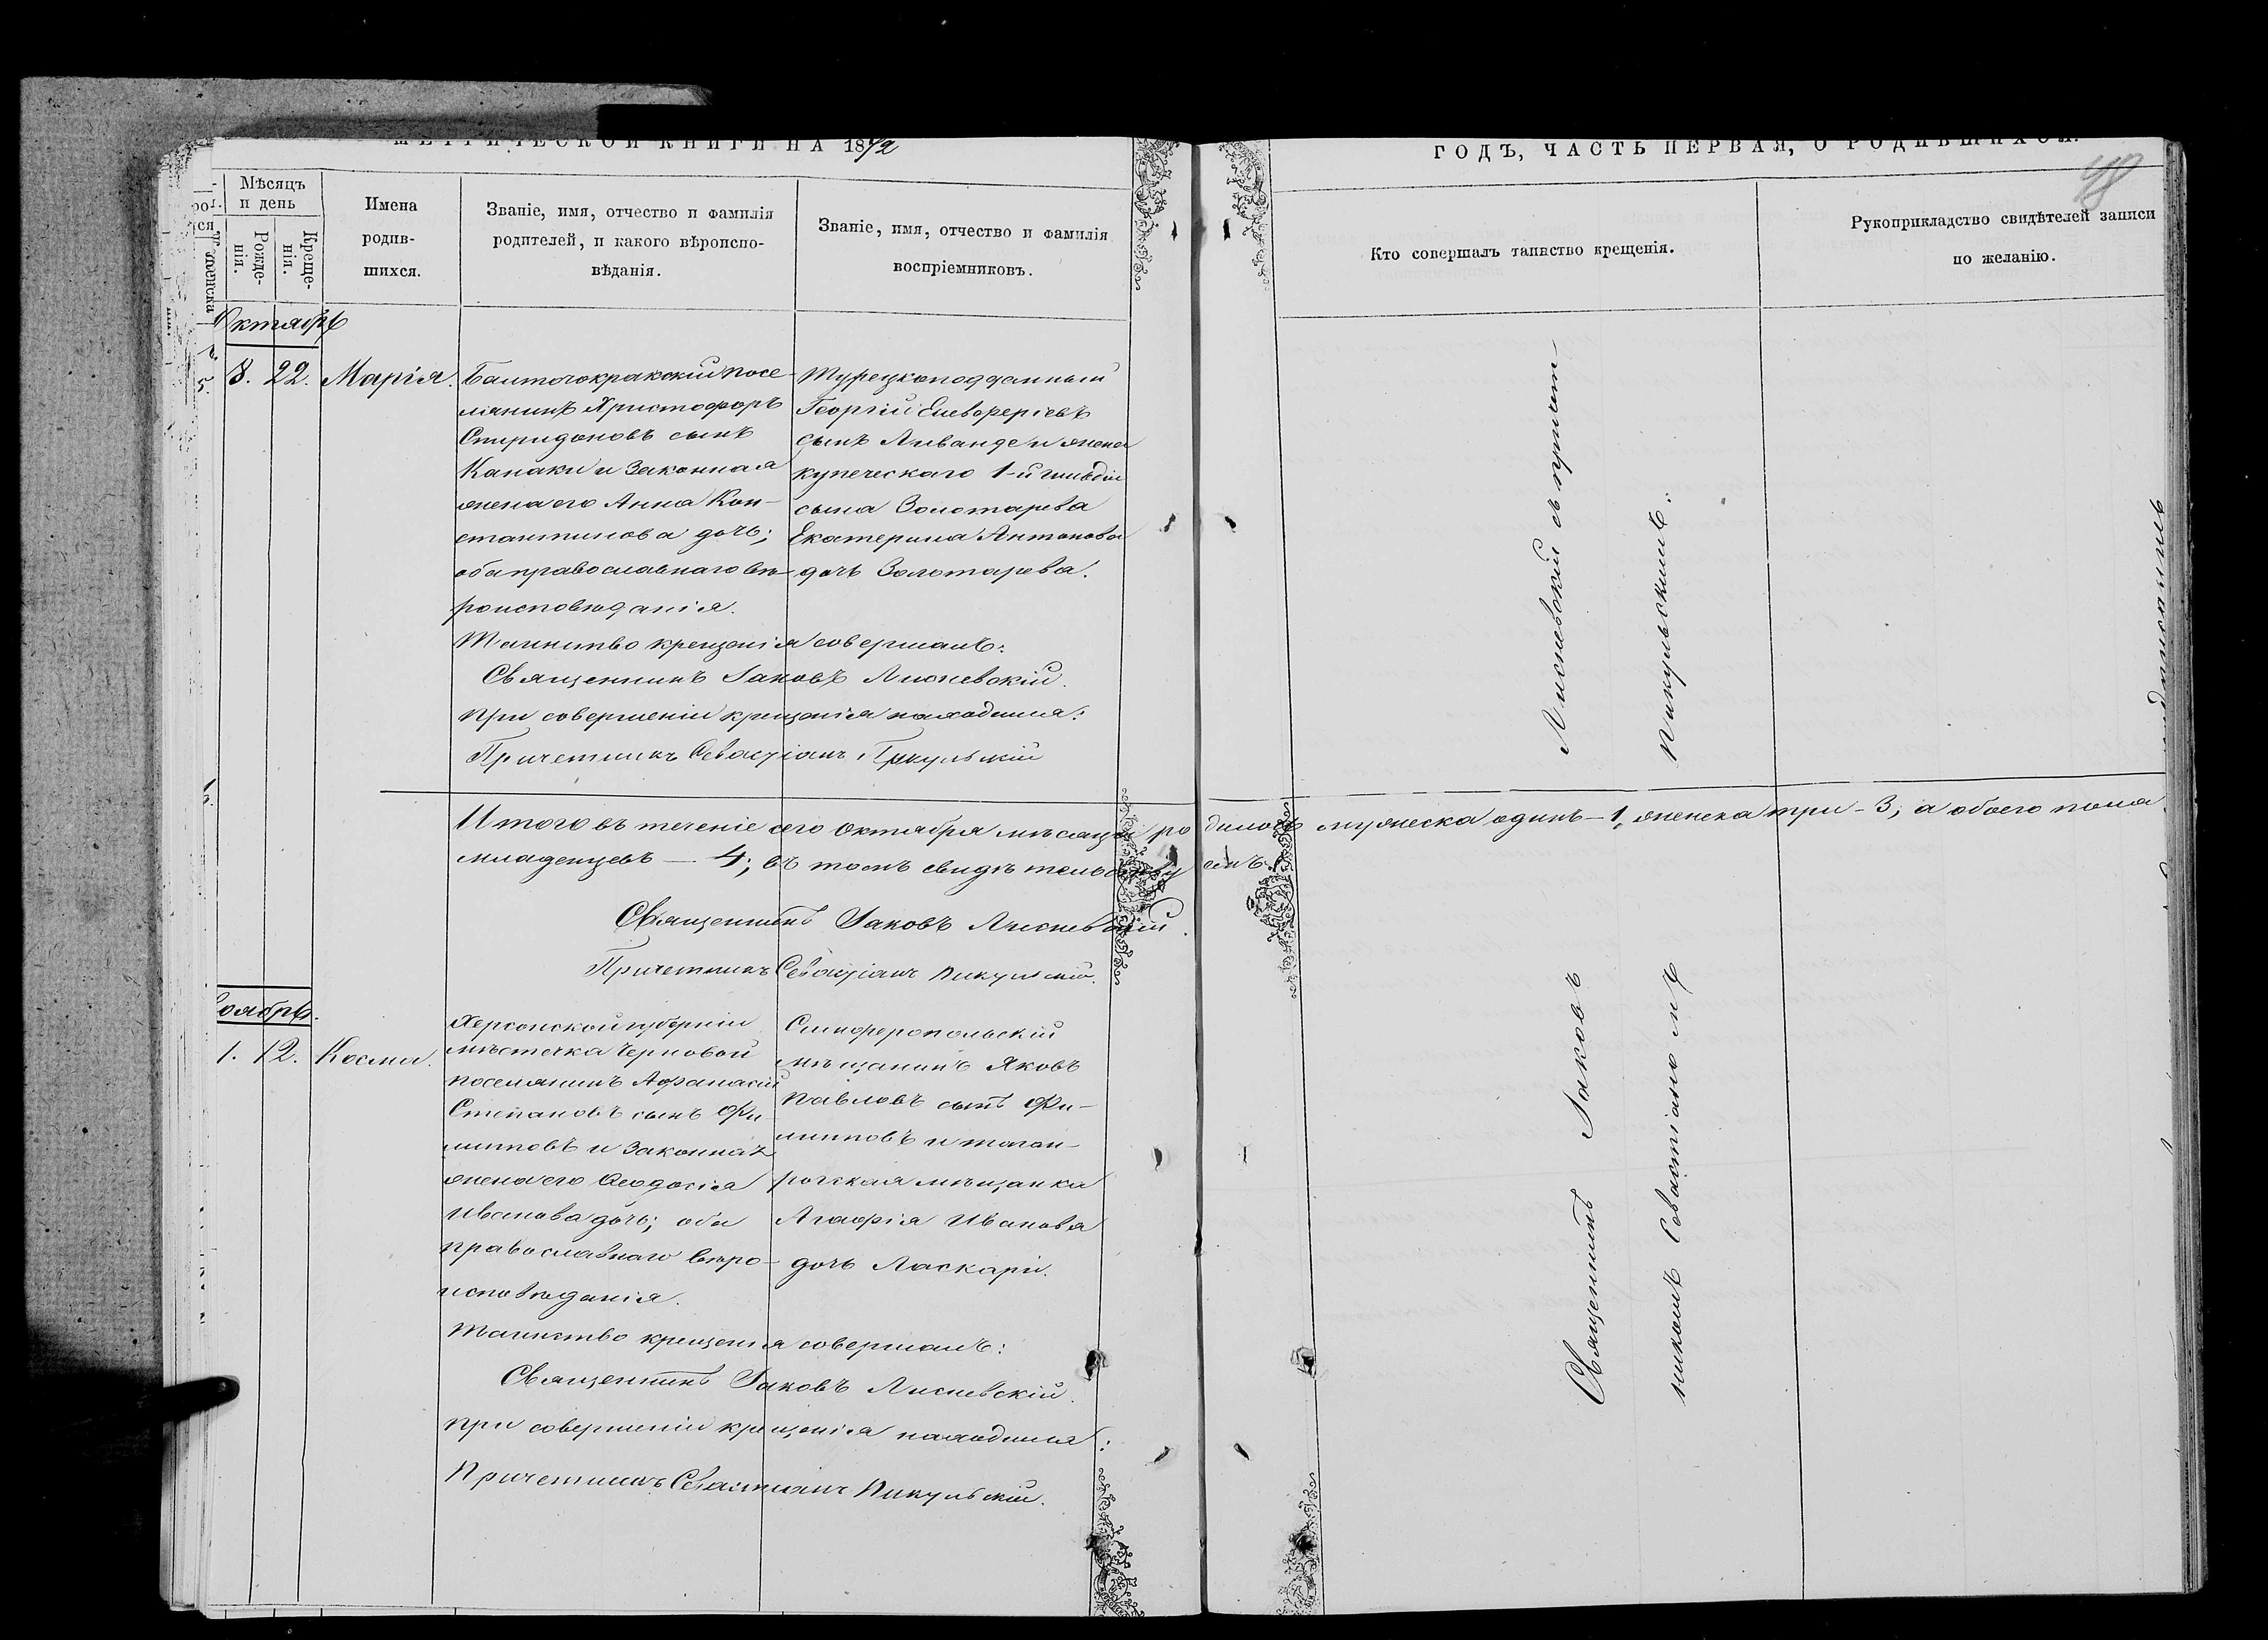 МЕТРИЧЕСКОЙ КНИГИ НА 1872
ГОДЪ, ЧАСТЬ ПЕРВАЯ, О РОДИВШИХСЯ.
48
Мѣсяцъ
и день
Рожде-
нія.
Креще-
нія.
Имена
родив-
шихся.
Званіе, имя, отчество и фамилія
родителей, и какого вѣроиспо-
вѣданія.
Званіе, имя, отчество и фамилія
воспріемниковъ.
Кто совершалъ таинство крещенія.
Рукоприкладство свидѣтелей записи
по желанію.
Октябрь
8. 22. Марія.
посе-
лянинъ Христофоръ
Спиридоновъ сынъ
Канаки и законная
жена его Анна Кон-
стантинова дочь;
оба православнаго вѣ-
роисповѣданія.
Турецкоподданный
Георгій Елевферіевъ
сынъ Ливанде и жена
купеческаго 1-й гильдіи
сына Золотарева
Екатерина Антонова
дочь Золотарева.
Таинство крещенія совершалъ:
Священникъ Іаковъ Лисневскій.
при совершеніи крещенія находился:
Причетникъ Севастіанъ Пикульскій
Лисневскій съ причет-
Пикульскимъ.
Итого въ теченіе сего Октября мѣсяца родилось мужеска одинъ - 1, женска три - 3, а обоего пола
младенцевъ — 4; въ томъ свидѣтельствуемъ
Священникъ Іаковъ Лисневскій.
Причетникъ Севастіанъ Пикульскій.
Ноябрь.
1. 12. Косма.
Херсонской губерніи
мѣстечка Черновой
поселянинъ Афанасій
Степановъ сынъ Фи-
липповъ и законная
жена его Ѳеодосія
Иванова дочь; оба
православнаго вѣро-
исповѣданія.
Симферопольскій
мѣщанинъ Яковъ
Павловъ сынъ Фи-
липповъ и таган-
рогская мѣщанка
Агафія Иванова
дочь Ласкари.
Таинство крещенія совершалъ:
Священникъ Іаковъ Лисневскій.
при совершеніи крещенія находился:
Причетникъ Севастіанъ Пикульскій.
Священникъ Іаковъ
никомъ Севастіаномъ